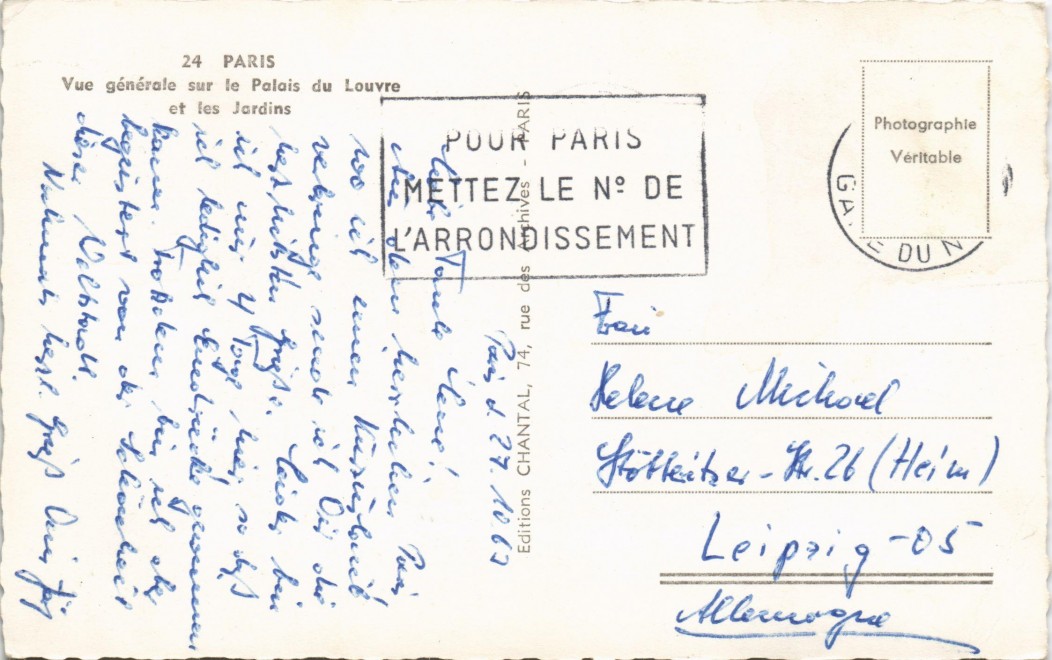 24 PARIS
Vue générale sur le Palais du Louvre
et les Jardins
Paris d. 27.10.63
Liebe Tante Lene!
Aus dem herrlichen Paris
wo ich einen Kurzurlaub
verbringe sende ich Dir die
herzlichsten Grüße. Leider bin
ich nur 4 Tage hier, so daß
ich lediglich Eindrücke gewinnen
kann. Trotzdem bin ich sehr
begeistert von der Schönheit
dieser Weltstadt.
Nochmals herzl. Grüße Dein
Editions CHANTAL, 74, rue des Archives - PARIS
POUR PARIS
METTEZ LE Nº DE
L'ARRONDISSEMENT
GARE DU N
Photographie
Véritable
Frau
Helene Michael
Stötteritzer-Str. 26 (Heim)
Leipzig-05
Allemagne